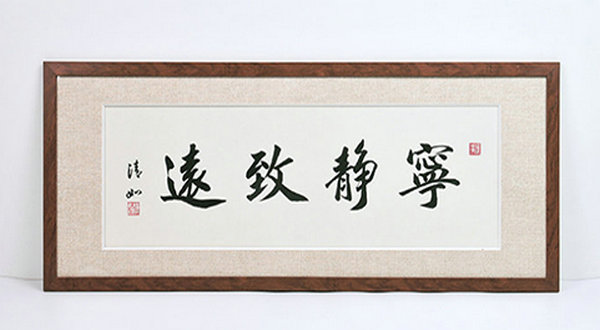 寧静致遠
清如